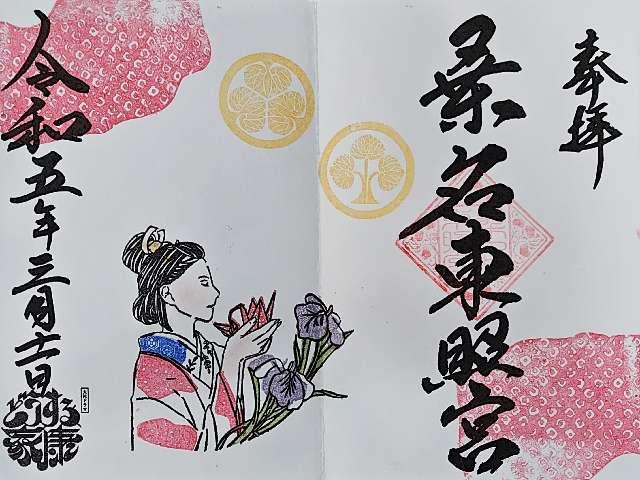 奉拝
桑名東照宮
令和五年三月十二日
どうする
家康